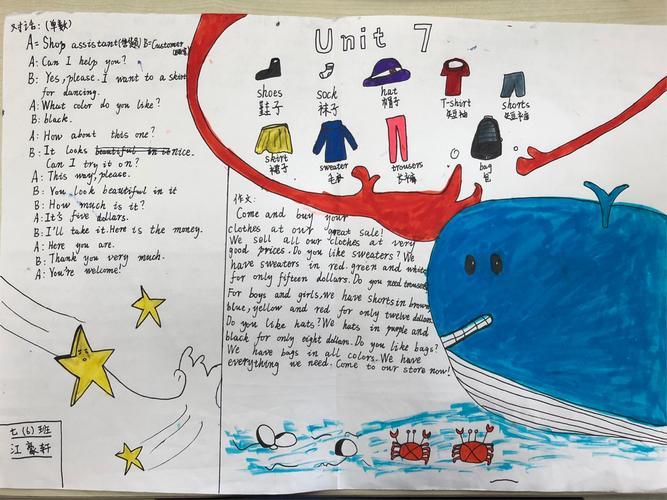 对话：(单数)
A= Shop assistant(售货员) B=Customer
A: Can I help you?
B: Yes, please. I want to a skirt
for dancing.
A: What color do you like?
B: black.
A: How about this one?
B: It looks beautiful in it nice.
Can I try it on?
A: This way, please.
B: You look beautiful in it
B: How much is it?
A: It's five dollars.
B: I'll take it. Here is the money.
A: Here you are.
B: Thank you very much.
A: You're welcome!
Unit 7
shoes sock hat T-shirt shorts
鞋子 袜子 帽子 短袖 短裤
skirt sweater trousers bag
裙子 毛衣 长裤 包
作文:
Come and buy your
clothes at our great sale!
We sell all our clothes at very
good prices. Do you like sweaters? We
have sweaters in red. green and white
for only fifteen dollars. Do you need trousers
For boys and girls, we have shorts in brown
blue, yellow and red for only twelve dollars
Do you like hats? We hats in purple and
black for only eight dollars. Do you like bags?
We have bags in all colors. We have
everything we need. Come to our store now!
七(6)班
江豪轩